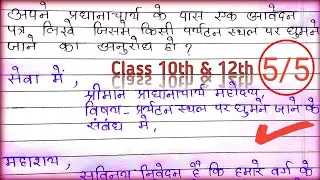 अपने प्रधानाचार्य के पास एक आवेदन
पत्र लिखें जिसमें किसी पर्यटन स्थल पर घुमने
जाने का अनुरोध हो ?
Class 10th & 12th
5/5
सेवा में,
श्रीमान प्राधानाचार्य महोदय,
विषय- पर्यटन स्थल पर घुमने जाने के
संबंध में,
महाशय,
सविनय निवेदन है कि हमारे वर्ग के